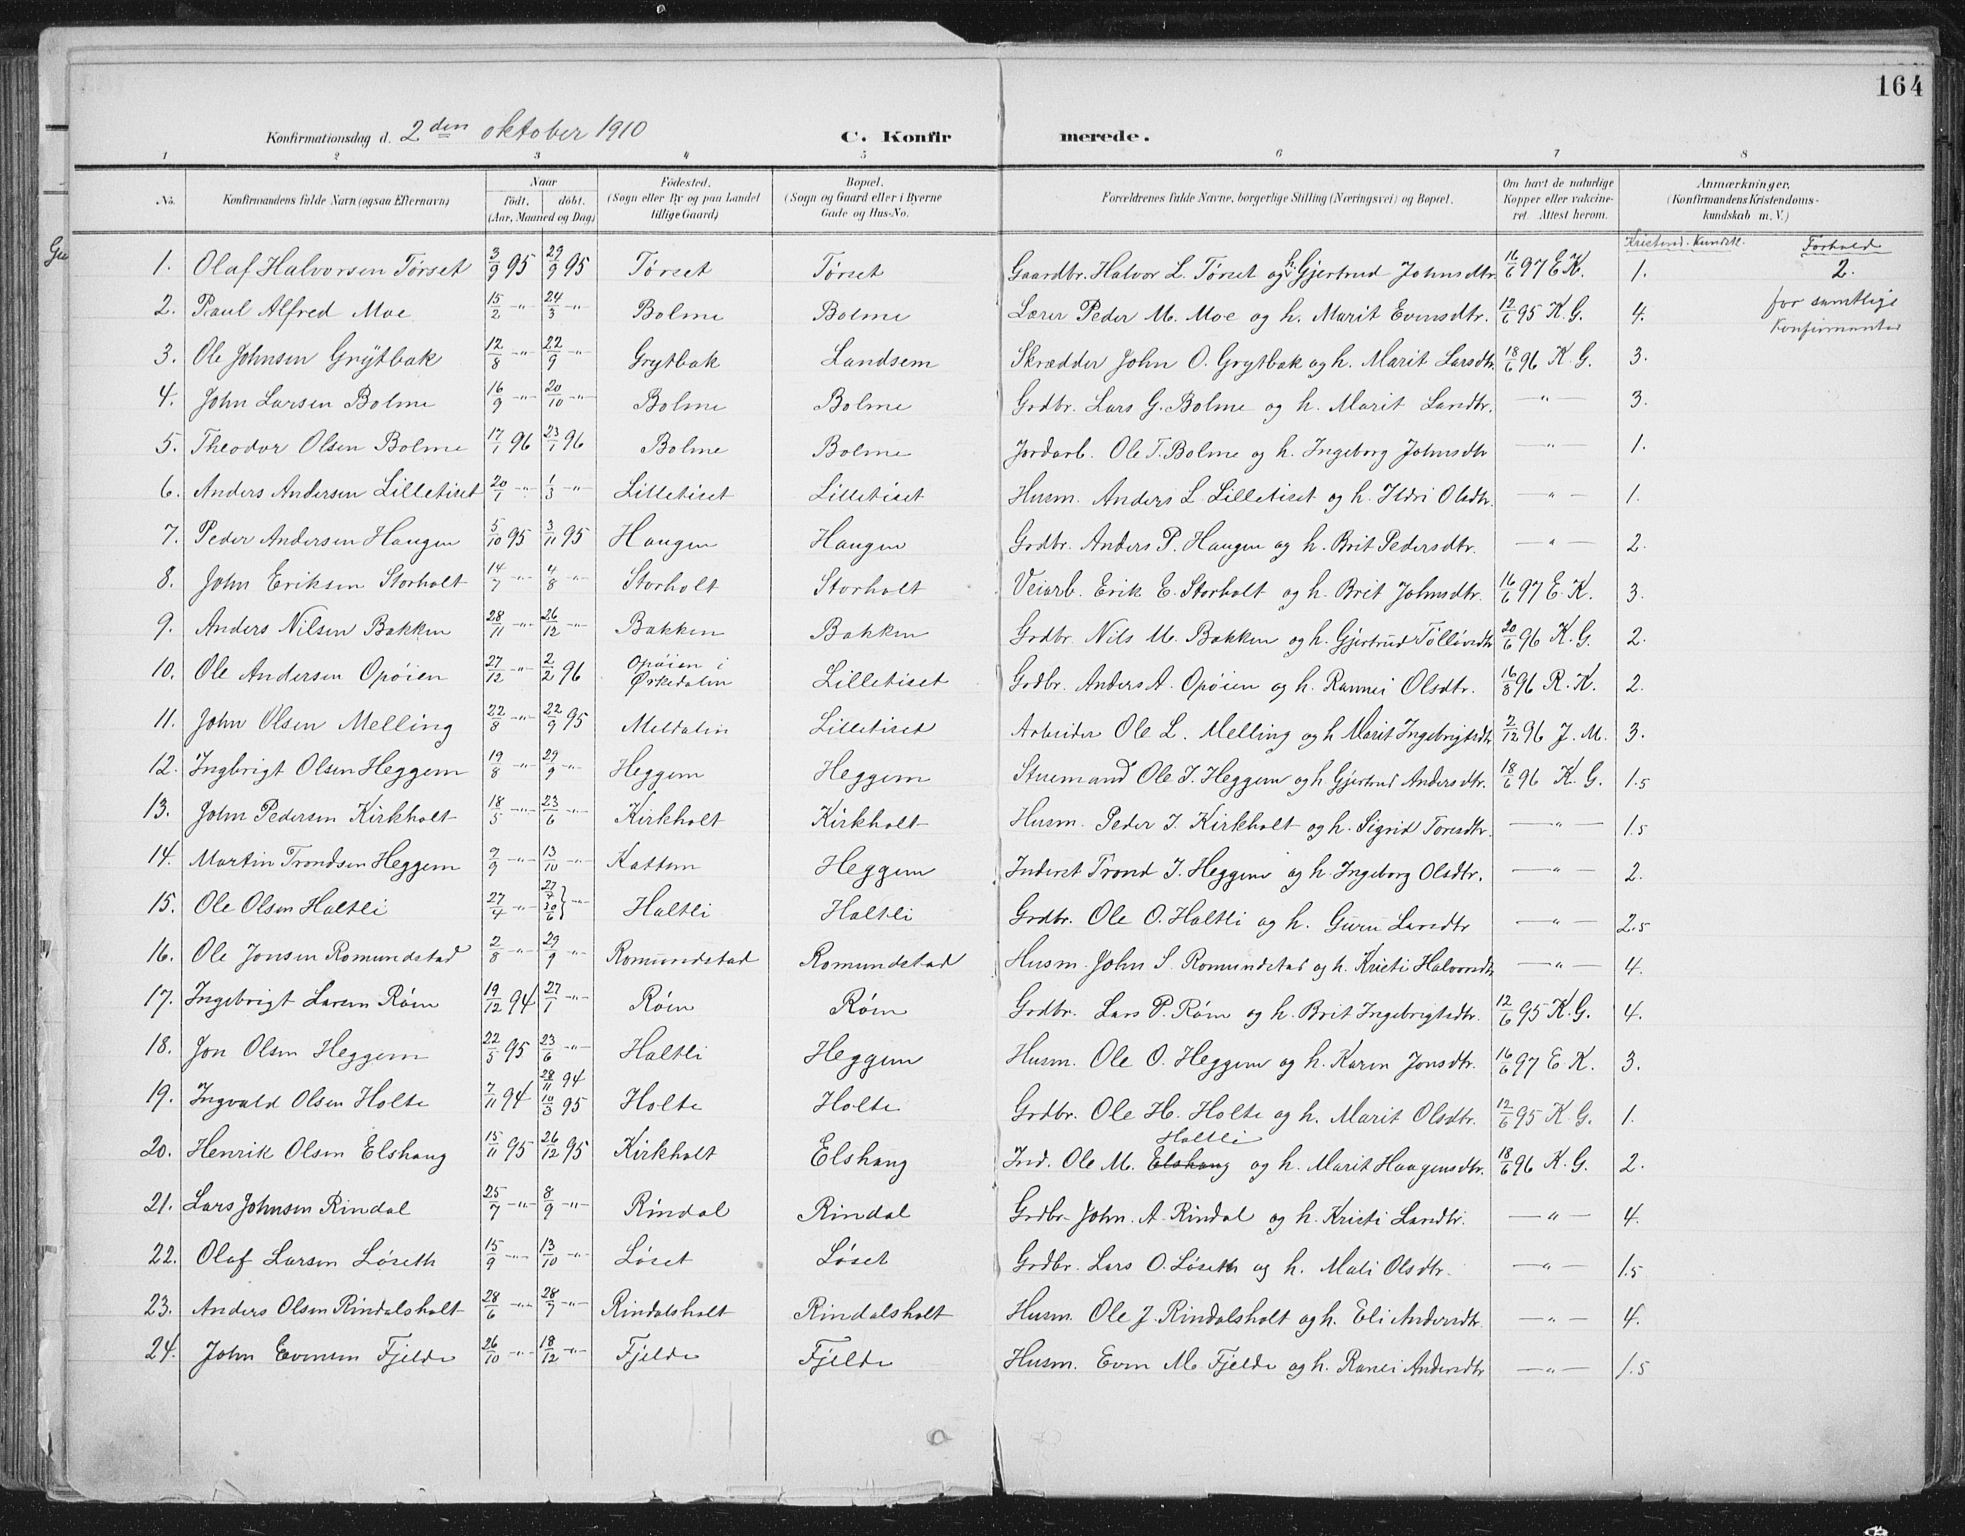 164
Konfirmationsdag d. 2den oktober 1910 C. Konfirmerede.
1 2 3 4 5 6 7 8
No. Konfirmandens fulde Navn (ogsaa Efternavn) Naar født. døbt. (Aar, Maaned og Dag) Fødested. (Sogn eller By og paa Landet tillige Gaard) Bopæl. (Sogn og Gaard eller i Byerne Gade og Hus-No. Forældrenes fulde Navne, borgerlige Stilling (Næringsvei) og Bopæl. Om havt de naturlige Kopper eller vakcineret. Attest herom. Anmærkninger. (Konfirmandens Kristendomskundskab m. V.)
Kristend. Kundsk. Forhold
1. Olaf Halvorsen Tørset 3/9 95 29/9 95 Tørset Tørset Gaardbr. Halvor L. Tørset og h. Gjertrud Johnsdtr. 16/6 97 E.K. 1. 2.
2. Paul Alfred Moe 15/2 -"- 24/3 -"- Bolme Bolme Lærer Peder M. Moe og h. Marit Evensdtr. 12/6 95 K.G. 4. for samtlige Konfirmanter
3. Ole Johnsen Grytbak 12/8 -"- 22/9 -"- Grytbak Landsem Skrædder John O. Grytbak og h. Marit Larsdtr 18/6 96 K.G. 3.
4. John Larsen Bolme 16/9 -"- 20/10 -"- Bolme Bolme Grdbr. Lars G. Bolme og h. Marit Larsdtr. -"- 3.
5. Theodor Olsen Bolme 17/1 96 23/1 96 Bolme Bolme Jordarb. Ole T. Bolme og h. Ingeborg Johnsdtr -"- 1.
6. Anders Andersen Lilletiset 20/1 -"- 1/3 -"- Lilletiset Lilletiset Husm. Anders L Lilletiset og h. Ildri Olsdtr. -"- 1.
7. Peder Andersen Haugen 5/10 95 3/11 95 Haugen Haugen Grdbr. Anders P. Haugen og h. Brit Pedersdtr. -"- 2.
8. John Eriksen Storholt 14/7 -"- 4/8 -"- Storholt Storholt Veiarb. Erik E. Storholt og h. Brit Johnsdtr. 16/6 97 E.K. 3.
9. Anders Nilsen Bakken 28/11 -"- 26/12 -"- Bakken Bakken Grdbr. Nils M. Bakken og h. Gjertrud Tølløvsdtr 20/6 96 K.G. 2.
10. Ole Andersen Opøien 27/12 -"- 2/2 96 Opøien i Ørkedalen Lilletiset Grdbr. Anders A. Opøien og h. Rannei Olsdtr. 16/8 96 R.K. 2.
11. John Olsen Melling 22/8 -"- 22/9 95 Meldalen Lilletiset Arbeider Ole L. Melling og h Marit Ingebrigtsdtr 2/12 96 J.M. 3.
12. Ingbrigt Olsen Heggem 19/8 -"- 29/9 -"- Heggem Heggem Stuemand Ole I. Heggem og h. Gjertrud Andersdtr. 18/6 96 K.G. 1.5
13. John Pedersen Kirkholt 18/5 -"- 23/6 -"- Kirkholt Kirkholt Husm. Peder J. Kirkholt og h. Sigrid Toresdtr. -"- 1.5
14. Martin Trondsen Heggem 7/9 -"- 13/10 -"- Kattem Heggem Inderst Trond J. Heggem og h. Ingeborg Olsdtr. -"- 2.
15. Ole Olsen Haltli 27/4 -"- 27/4 20/6 } -"- Haltli Haltli Grdbr. Ole O. Haltli og h. Guru Larsdtr -"- 2.5
16. Ole Jonsen Romundstad 2/8 -"- 29/9 -"- Romundstad Romundstad Husm. John S. Romundstad og h. Kristi Halvorsdtr -"- 4.
17. Ingebrigt Larsen Røen 19/12 94 27/1 -"- Røen Røen Grdbr. Lars P. Røen og h. Brit Ingebrigtsdtr. 12/6 95 K.G. 4.
18. Jon Olsen Heggem 22/5 95 23/6 -"- Haltli Heggem Husm. Ole O. Heggem og h. Karen Jonsdtr. 16/6 97 E K. 3.
19. Ingvald Olsen Holte 7/11 94 28/11 94 10/3 95 Holte Holte Grdbr. Ole H. Holte og h. Marit Olsdtr. 12/6 95 K.G. 1.
20. Henrik Olsen Elshaug 15/11 95 26/12 95 Kirkholt Elshaug Ind. Ole M. Elshaug Haltli og h. Marit Haagensdtr. 18/6 96 K.G. 2.
21. Lars Johnsen Rindal 25/7 -"- 8/9 -"- Rindal Rindal Grdbr. John. A. Rindal og h. Kristi Larsdtr. -"- 4.
22. Olaf Larsen Løseth 15/9 -"- 13/10 -"- Løset Løset Grdbr. Lars O. Løseth og h. Mali Olsdtr. -"- 1.5
23. Anders Olsen Rindalsholt 28/6 -"- 28/7 -"- Rindalsholt Rindalsholt Husm. Ole J. Rindalsholt og h. Eli Andersdtr. -"- 4.
24. John Evensen Fjelde 26/10 -"- 18/12 -"- Fjelde Fjelde Husm. Even M. Fjelde og h. Ranei Andersdtr -"- 1.5